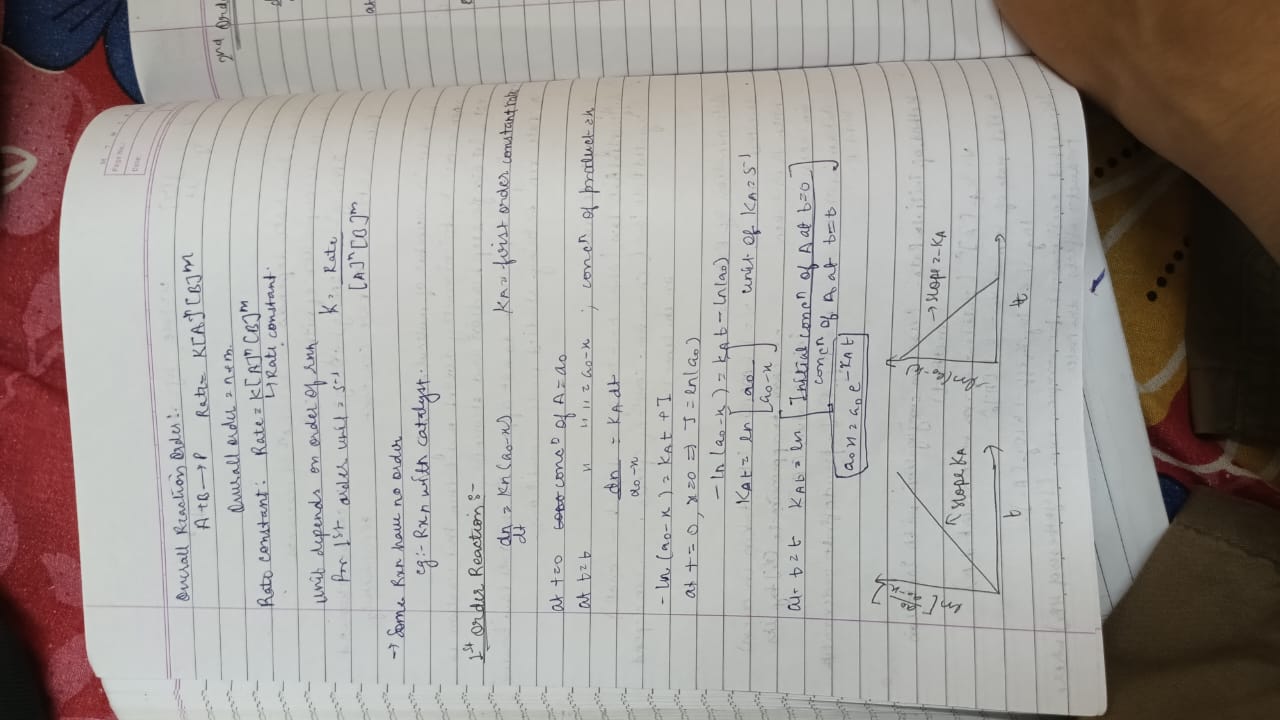 2nd Ord
Page No.
Date
Overall Reaction Order:-
A+B → P Rate = K[A]ⁿ[B]ᵐ
Overall order = n+m
Rate Constant: Rate = K[A]ⁿ[B]ᵐ
↳ Rate constant.
Unit depends on order of rxn
For 1st order unit = s⁻¹ K = Rate / [A]ⁿ[B]ᵐ
→ Some Rxn have no order
eg:- Rxn with catalyst.
1st Order Reaction :-
dx/dt = Kn (a₀-x) KA = first order constant rate
at t=0 concⁿ of A = a₀
at t=t " " " = a₀-x ; concⁿ of product = x
dx/a₀-x = KA dt
-ln (a₀-x) = KAt + I
at t=0, x=0 ⇒ I = ln(a₀)
-ln (a₀-x) = KAt - ln(a₀)
KAt = ln [a₀/a₀-x] unit of KA = s⁻¹
at t=t KAt = ln [Initial concⁿ of A at t=0 / concⁿ of A at t=t]
a₀x = a₀e⁻ᴷᴬᵗ
ln [a₀/a₀-x] slope KA t
ln (a₀-x) → slope = -KA t